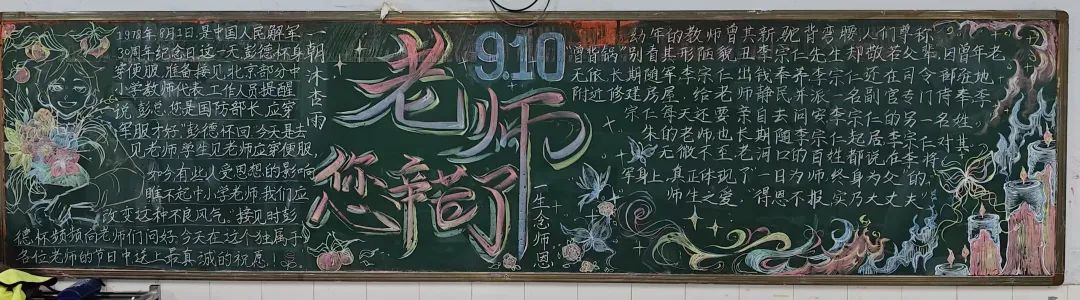 1978年8月1日,是中国人民解军
30周年纪念日这一天彭德怀身
穿便服,准备接见,北京部分中
小学教师代表,工作人员提醒
说:彭总,您是国防部长,应穿
军服才好,"彭德怀回:今天是去
见老师,学生见老师应穿便服,
如今有些人受思想的影响
瞧不起中小学老师,我们应
改变这种不良风气。"接见时彭
德怀频频向老师们问好,今天在这个独属于
各位老师的节日中送上最真诚的祝愿!
一朝沐杏雨
老师
9.10
您辛苦了
一生念师恩
幼年的教师曾其新,驼背弯腰,人们尊称
"曾背锅"别看其形陋貌丑,李宗仁先生却敬若父辈,因曾年老
无依,长期随军李宗仁出钱奉养李宗仁还在司令部驻地
附近修建房屋,给老师静民,并派一名副官专门侍奉,李
宗仁每天还要亲自去问安李宗仁的另一名姓
朱的老师也长期随李宗仁起居李宗仁对其
无微不至,老河口的百姓都说,在李将
军身上,真正体现了"一日为师,终身为父"的,
师生之爱,"得恩不报,实乃大丈夫"